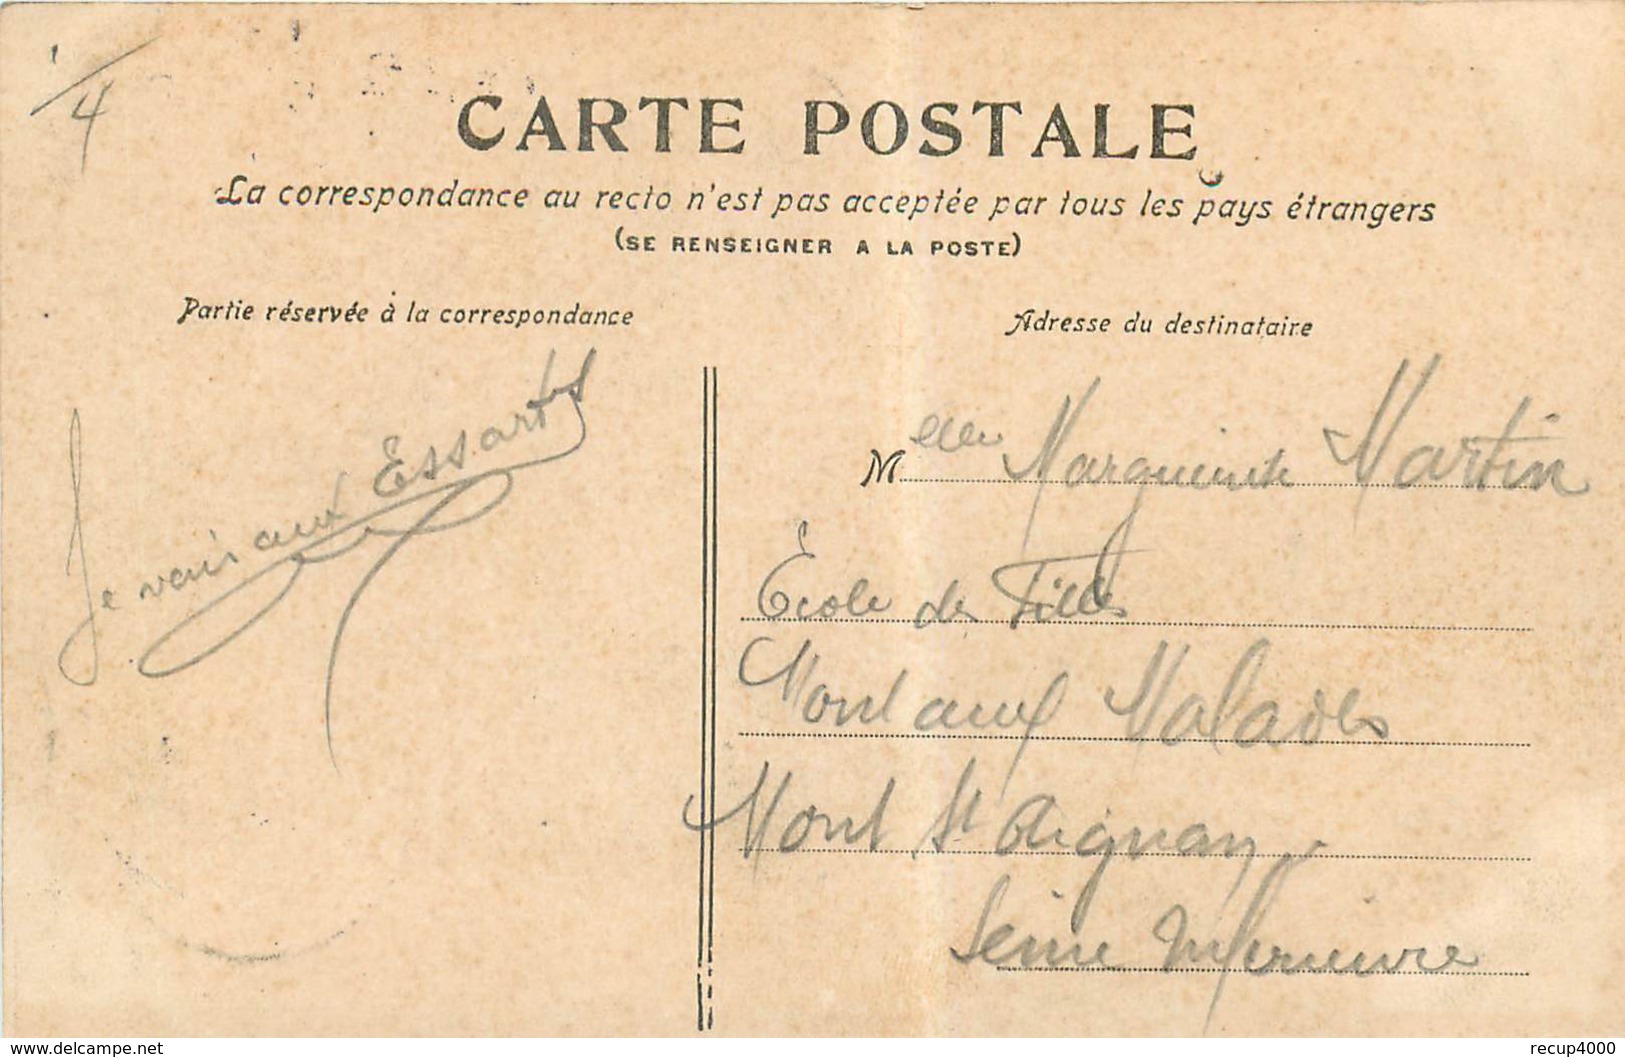 1/4
CARTE POSTALE
La correspondance au recto n'est pas acceptée par tous les pays étrangers
(SE RENSEIGNER A LA POSTE)
Partie réservée à la correspondance
Je vais aux Essarts
Adresse du destinataire
Melle Marguerite Martin
École des Filles
Mont aux Malades
Mont St Aignan
Seine Inférieure
delcampe.net
recup4000